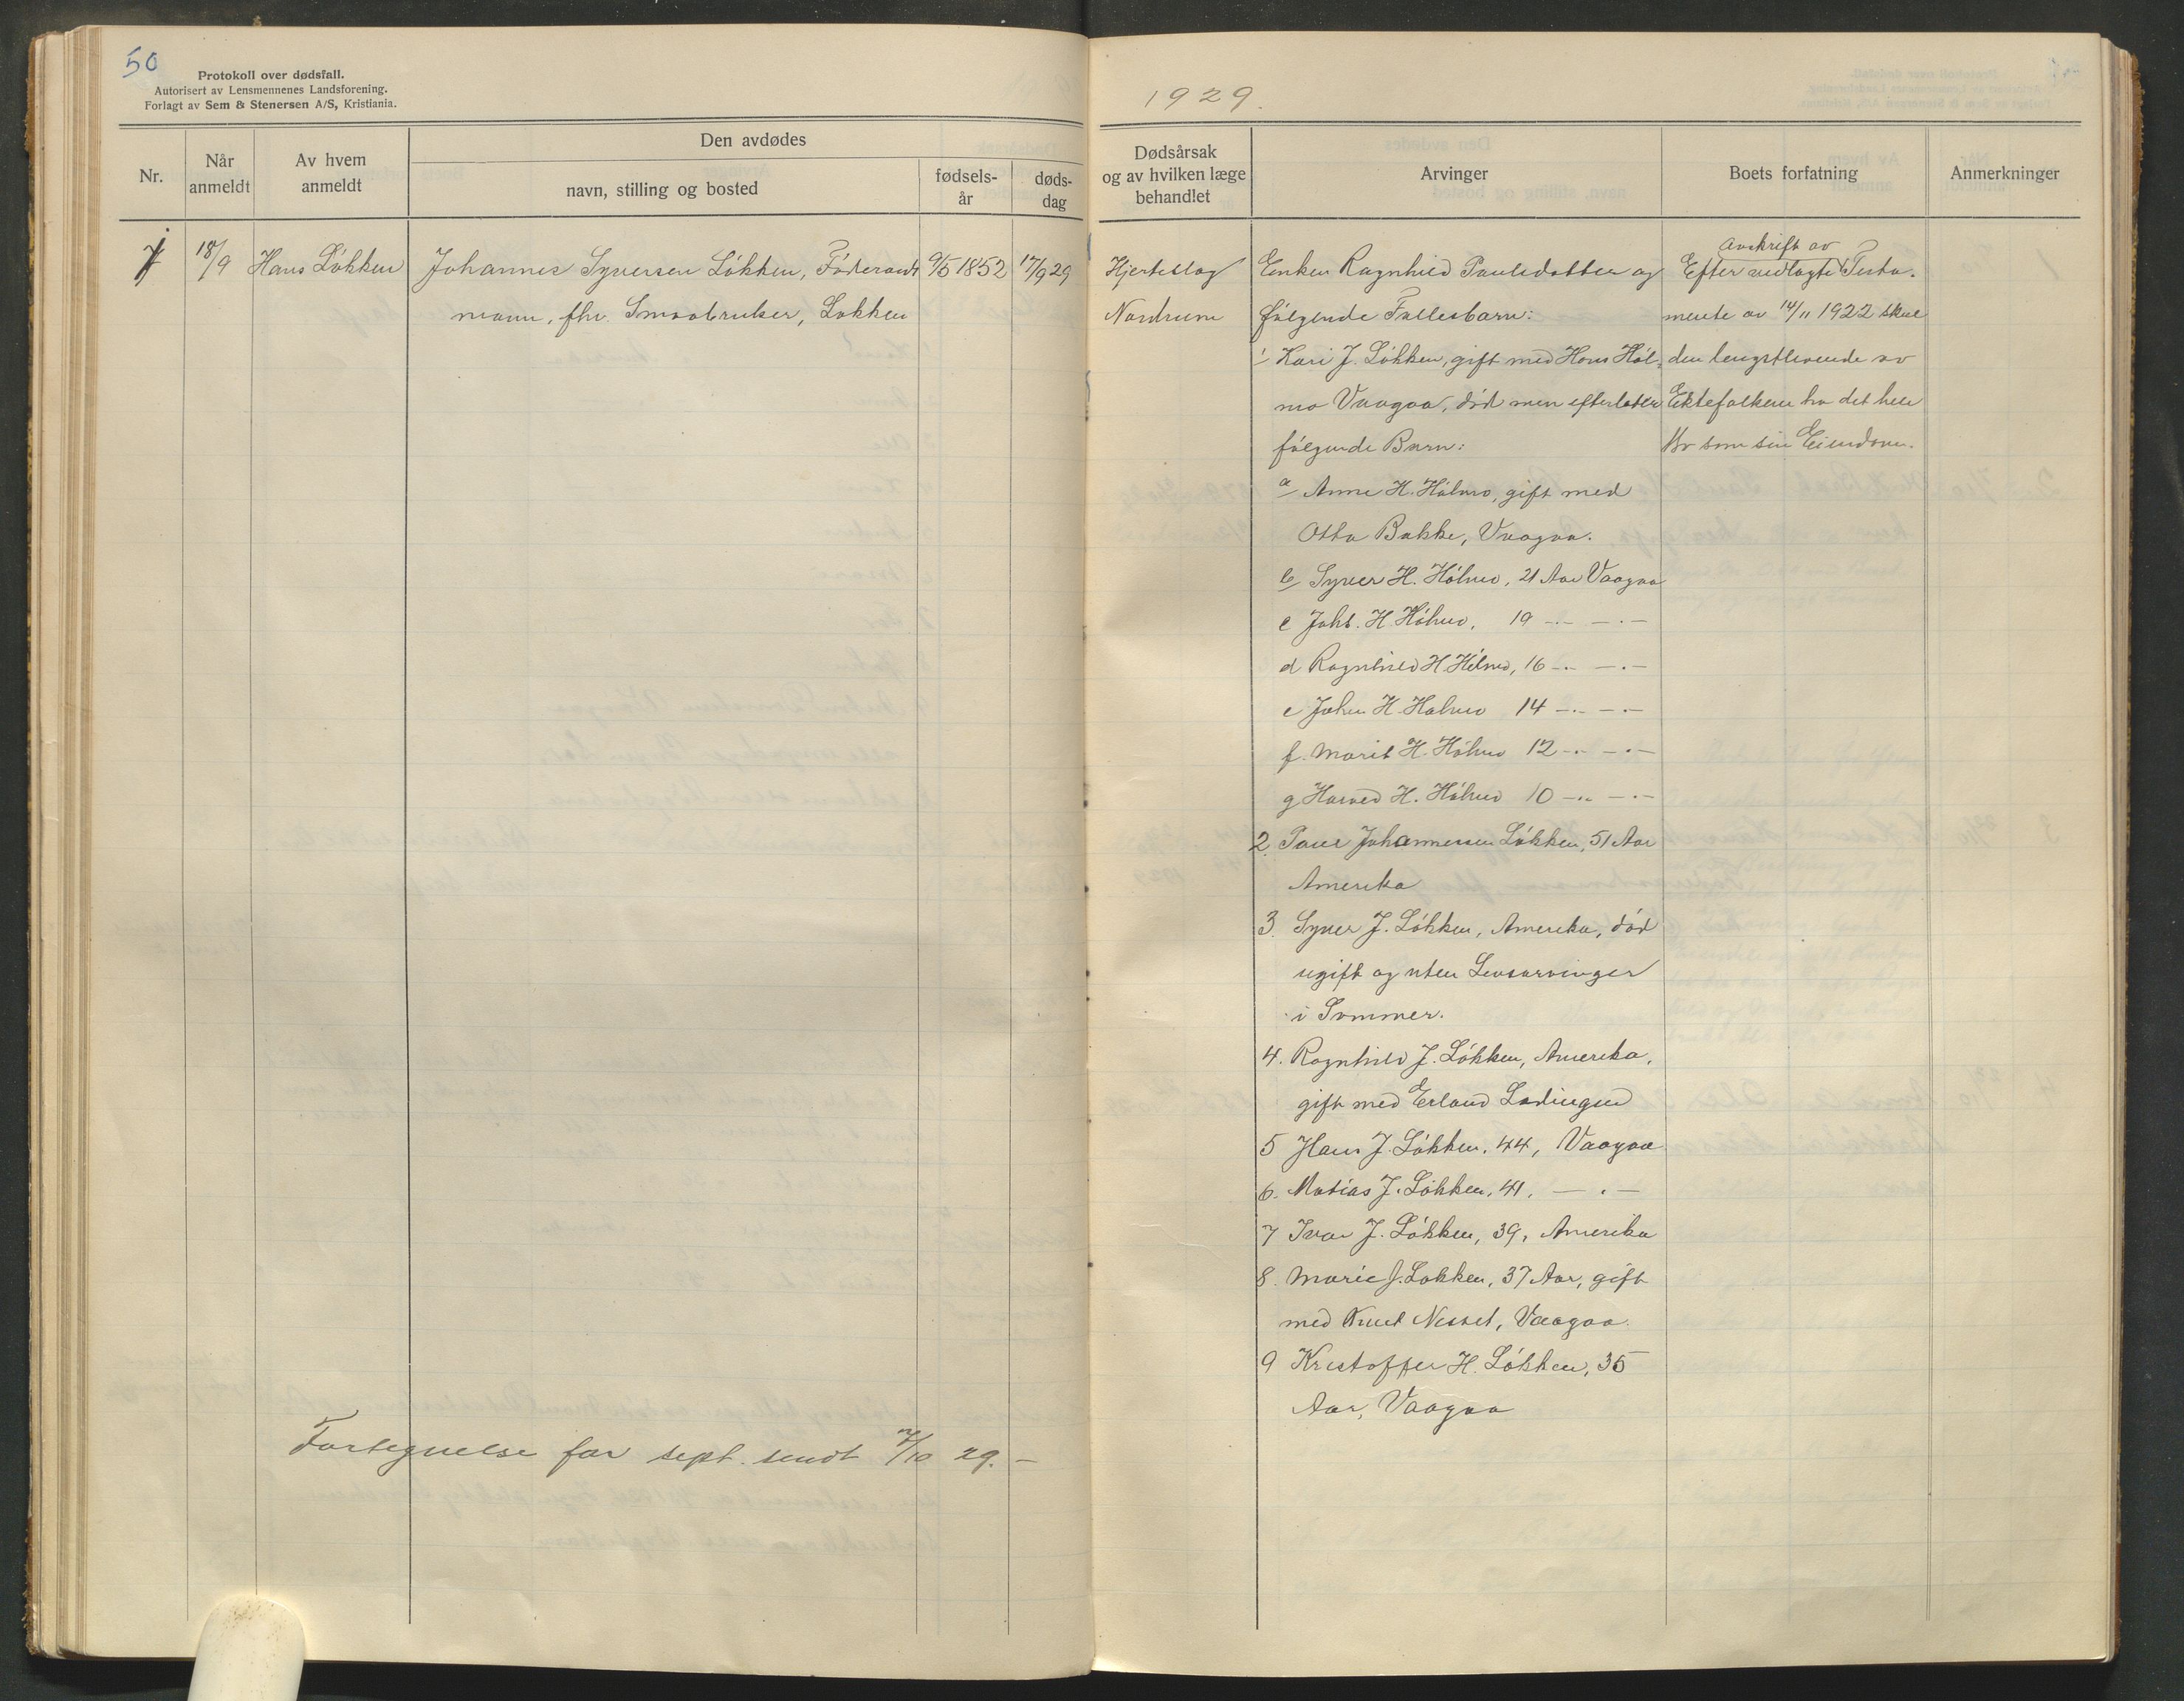 50
Protokoll over dødsfall.
Autorisert av Lensmennenes Landsforening.
Forlagt av Sem & Stenersen A/S, Kristiania.
1929.
Nr.
Når anmeldt
Av hvem anmeldt
Den avdødes
navn, stilling og bosted
fødsels-år
døds-dag
Dødsårsak og av hvilken læge behandlet
Arvinger
Boets forfatning
Anmerkninger
18/9 Hans Løkken
Johannes Syversen Løkken, Föderaads
mann, fhv. Smaabruker, Løkken
9/5 1852
17/9 29
Hjerteslag
Nordrum
Enken Ragnhild Paulsdatter og
følgende Fællesbarn:
1 Kari J. Løkken, gift med Hans Høl-
mo Vaagaa, død men efterlater
følgende Barn:
a Anne H. Hølmo, gift med
Otto Bakke, Vaagaa.
b Syver H. Hølmo, 21 Aar Vaagaa
c Johs. H. Hølmo, 19 -.- -.-
d Ragnhild H. Hølmo, 16 -.- -.-
e Johan H. Hølmo 14 -.- -.-
f. Marit H. Hølmo 12 -.- -.-
g Harald H. Hølmo 10 -.- -.-
2. Paul Johannessen Løkken, 51 Aar
Amerika
3. Syver J. Løkken, Amerika, død
ugift og uten Livsarvinger
i Sommer.
4. Ragnhild J. Løkken, Amerika,
gift med Erland
5 Hans J. Løkken, 44, Vaagaa
6. Matias J. Løkken, 41, -.-
7 Ivar J. Løkken, 39, Amerika
8. Marie J. Løkken, 37 Aar, gift
med Knut Nesset, Vaagaa.
9 Kristoffer H. Løkken, 35
Aar, Vaagaa
avskrift av
Efter vedlagte Testa-
mente av 14/11 1922 skal
den lengstlevende av
Ektefolkene ha det hele
Bo som sin Eiendom.
Fortegnelse for sept. sendt 7/10 29.-